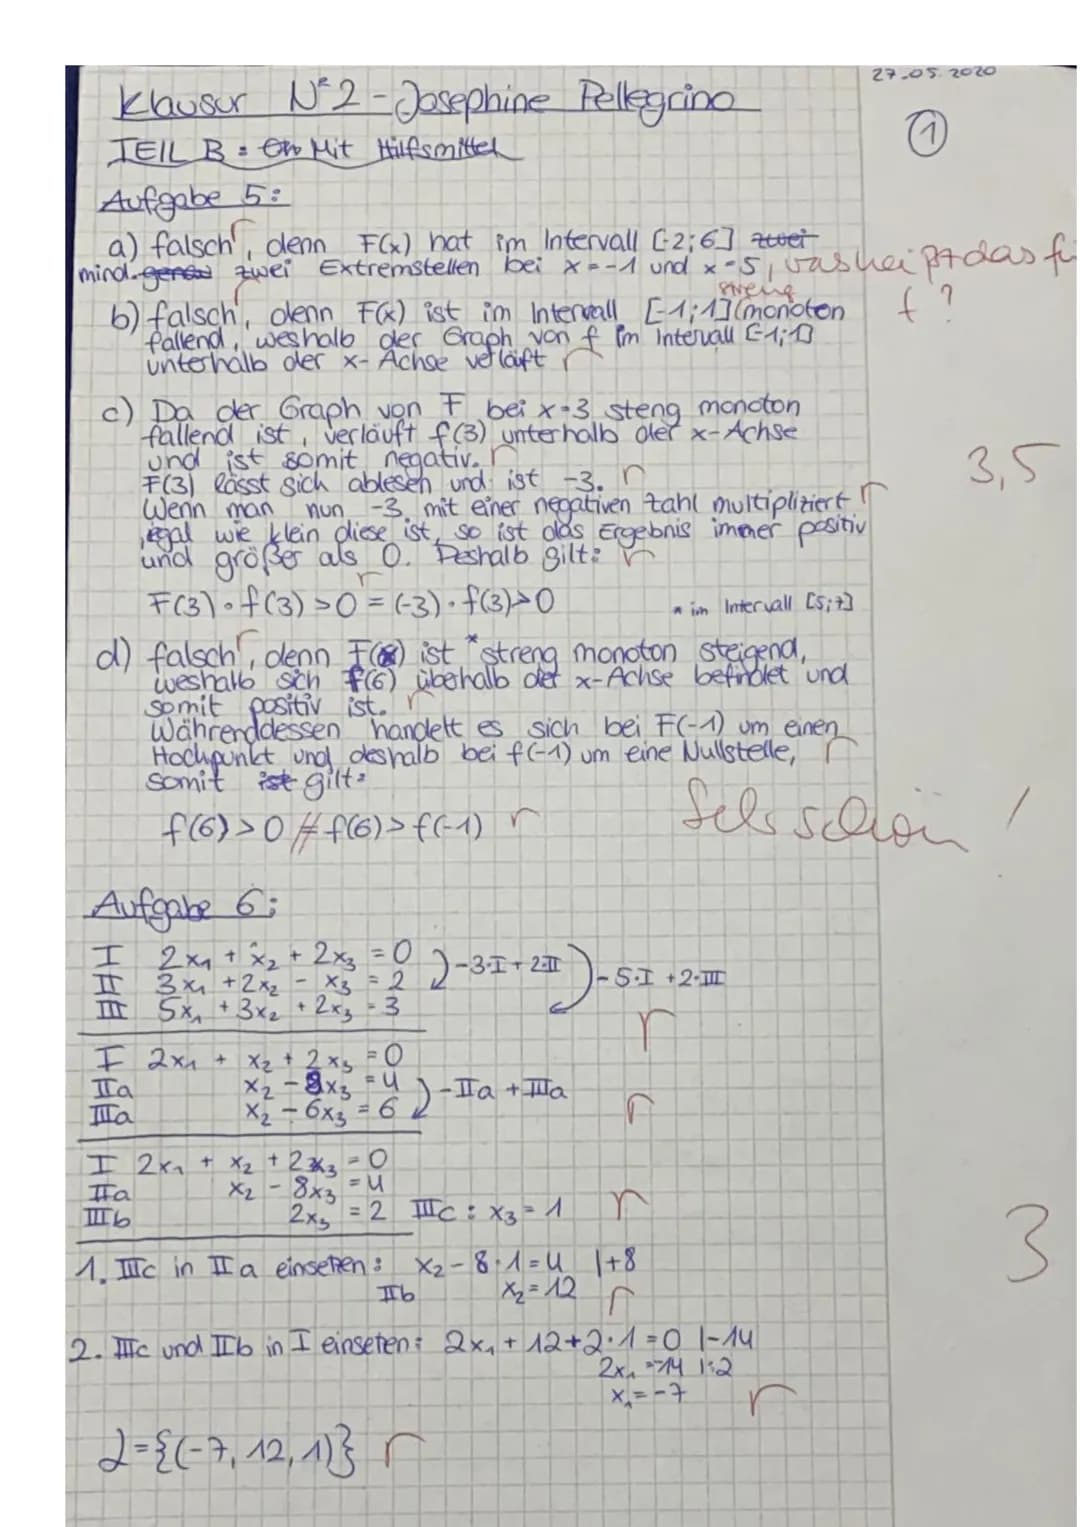 27.05.2020
Klausur N°2 - Josephine Pellegrino
①
TEIL B: Mit Hilfsmittel
Aufgabe 5:
a) falsch, denn F(x) hat im Intervall [-2;6] zwei
mind. genau zwei Extremstellen bei x=-1 und x=5, was heißt das für
f?
streng
b) falsch, denn F(x) ist im Intervall [-1;1] (monoton
fallend, weshalb der Graph von f im Intervall [-1;1]
unterhalb der x-Achse verläuft
c) Da der Graph von F bei x=3 steng monoton
fallend ist, verläuft f(3) unterhalb der x-Achse
und ist somit negativ.
3,5
F(3) lässt sich ablesen und ist -3.
Wenn man nun -3 mit einer negativen Zahl multipliziert
egal wie klein diese ist, so ist das Ergebnis immer positiv
und größer als 0. Deshalb gilt:
F(3)·f(3)>0 = (-3)·f(3)>0
* im Intervall [5;7]
d) falsch, denn F(x) ist * streng monoton steigend,
weshalb sich f(6) überhalb der x-Achse befindet und
somit positiv ist.
Währenddessen handelt es sich bei F(-1) um einen
Hochpunkt und deshalb bei f(-1) um eine Nullstelle,
somit ist gilt:
f(6)>0 ≠ f(6)>f(-1)
Sehr schön!
Aufgabe 6:
I 2x₁ + x₂ + 2x₃ = 0
II 3x₁ + 2x₂ - x₃ = 2 -3·I + 2·II -5·I + 2·III
III 5x₁ + 3x₂ + 2x₃ = 3
I 2x₁ + x₂ + 2x₃ = 0
IIa x₂ - 8x₃ = 4 -IIa + IIIa
IIIa x₂ - 6x₃ = 6
I 2x₁ + x₂ + 2x₃ = 0
IIa x₂ - 8x₃ = 4
IIIb 2x₃ = 2 IIIc: x₃ = 1
3
1. IIIc in IIa einsetzen: x₂ - 8·1 = 4 |+8
IIb x₂ = 12
2. IIIc und IIb in I einseten: 2x₁ + 12 + 2·1 = 0 |-14
2x₁ = -14 |:2
x₁ = -7
L = {(-7, 12, 1)}